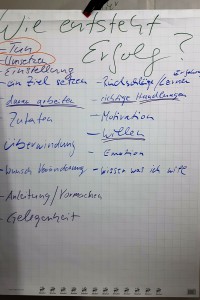 Wie entsteht
Erfolg?
- Tun
- Umsetzen
- Einstellung
- ein Ziel setzen
- daran arbeiten
- Zutaten
- Überwindung
- Wunsch Veränderung
- Anleitung/Vormachen
- Gelegenheit
- Rückschläge/Lernen
- richtige Handlungen
- Motivation
- Willen
- Emotion
- wissen was ich will